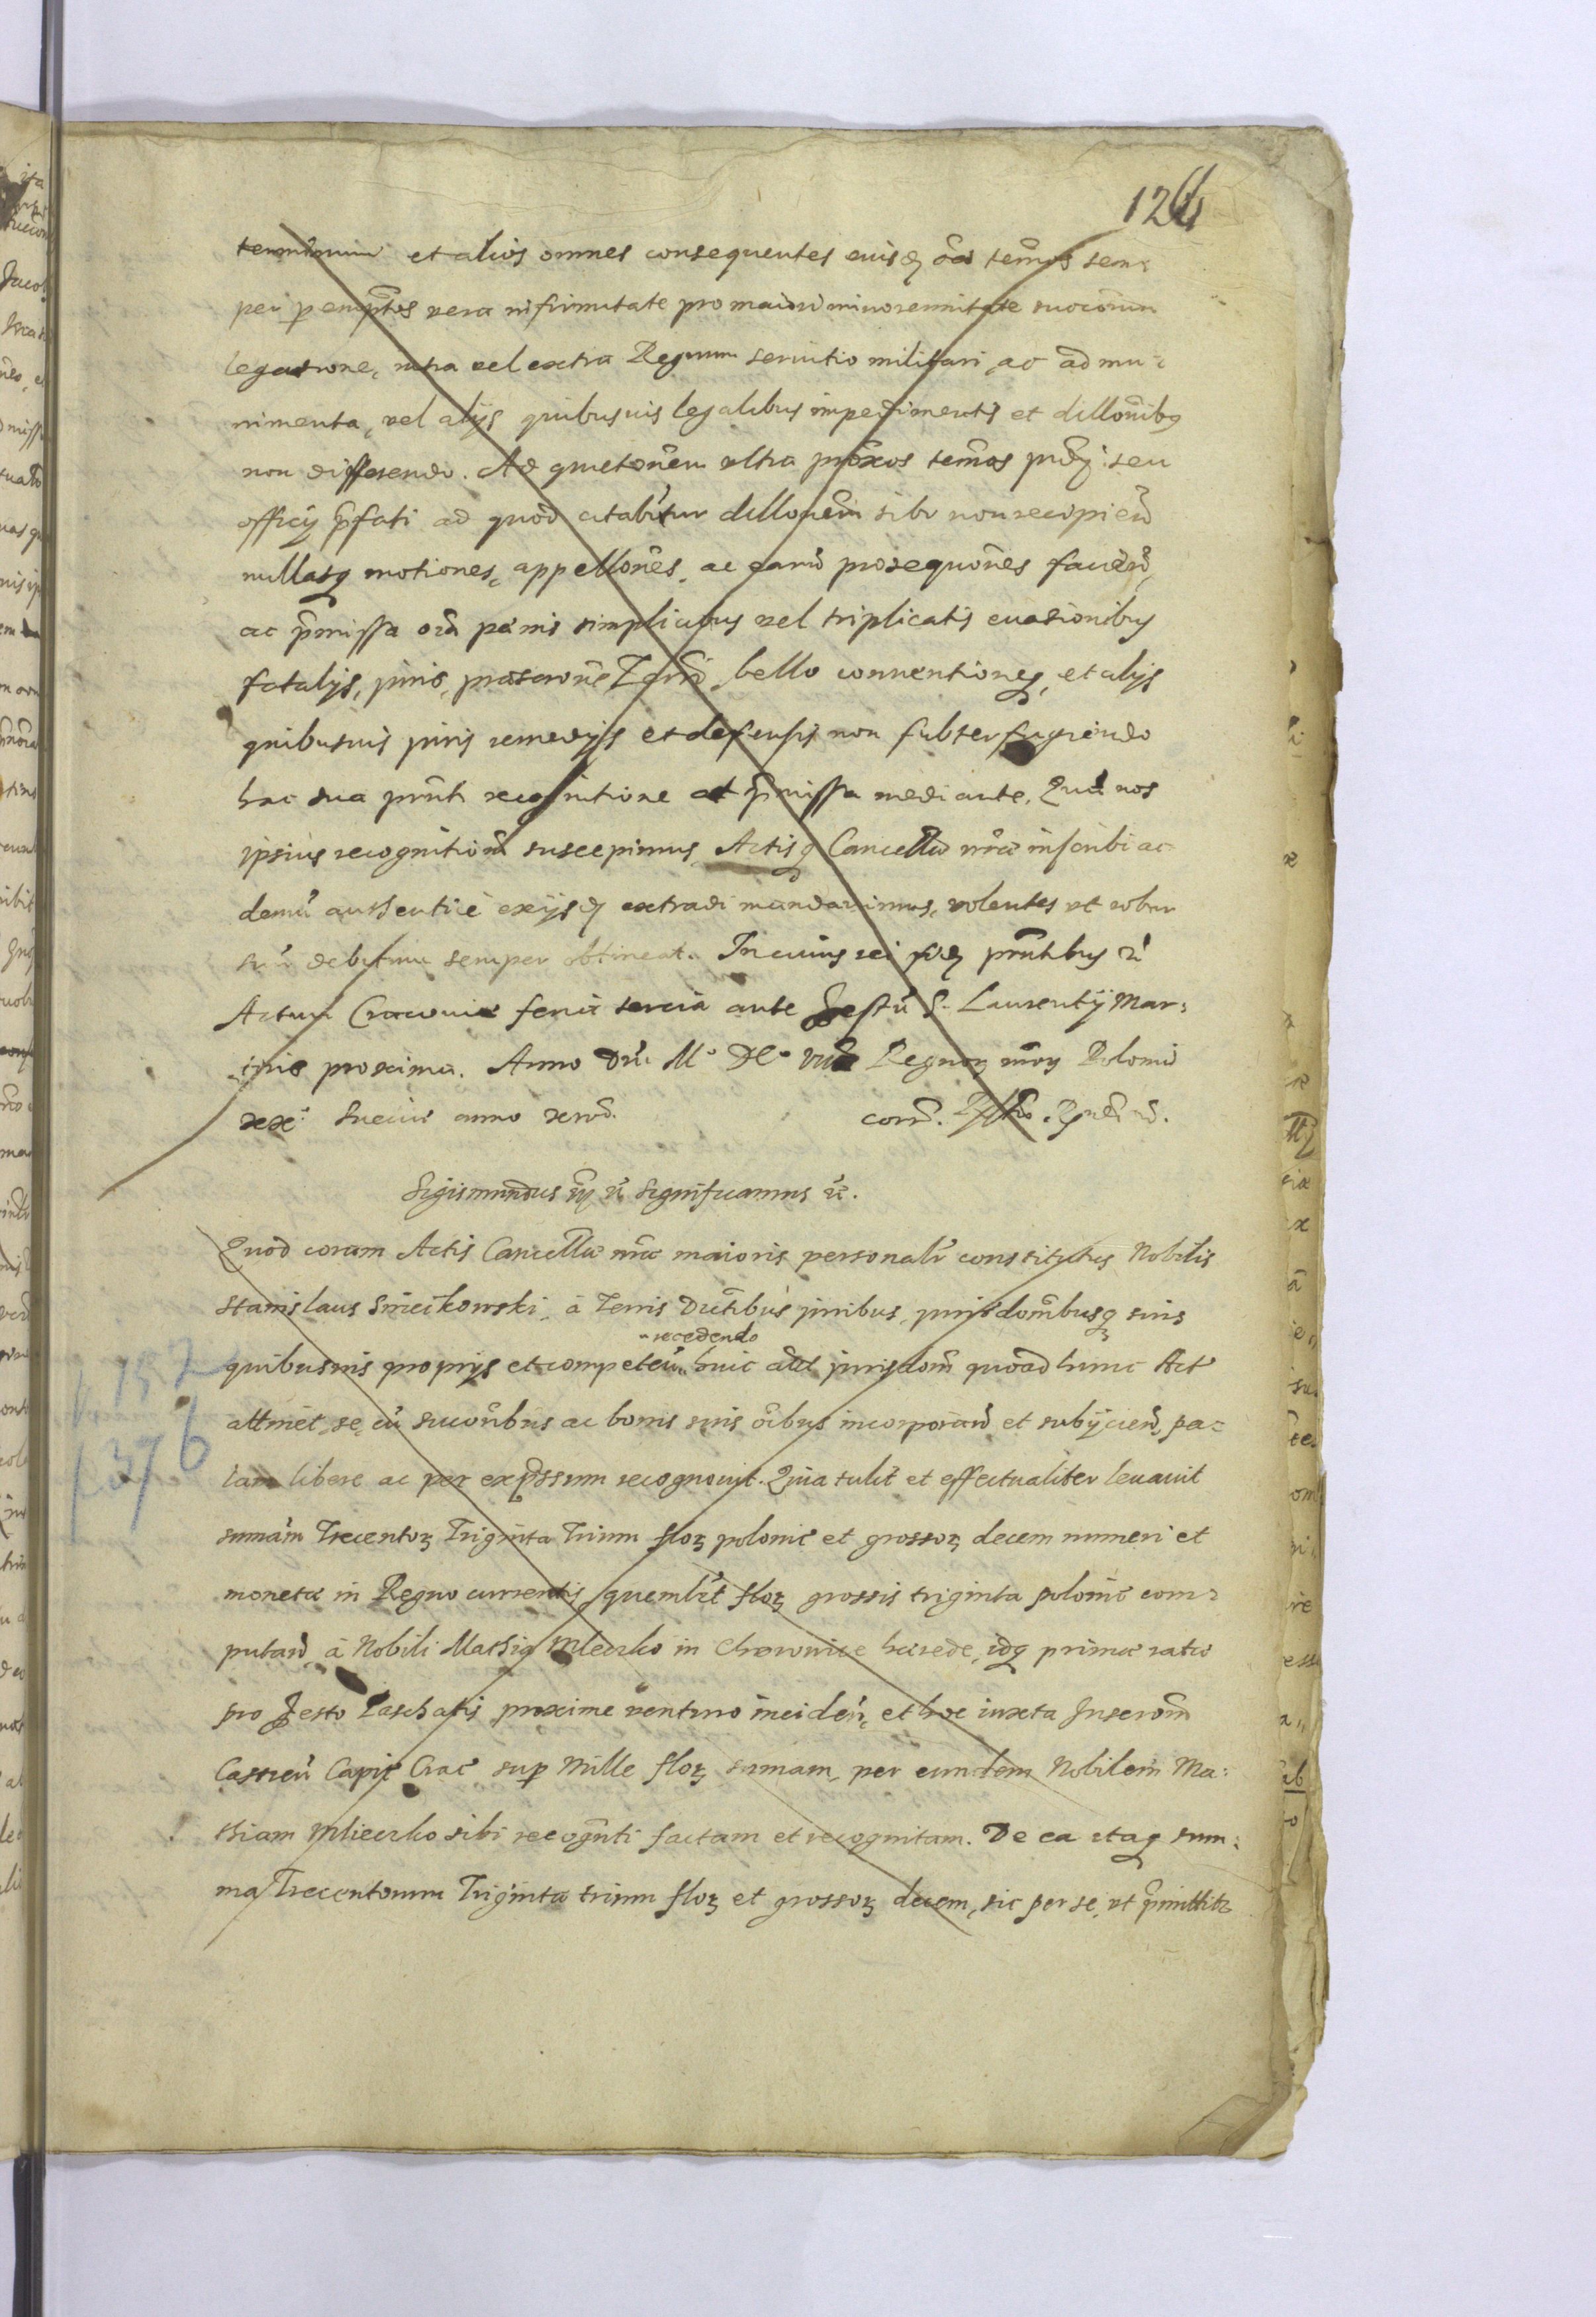 126
terminum et alios omnes consequentes euisq oes temos sem:
per peremptos vera infirmitate pro maiori minoremnitate succorum
legatione, intra vel extra Regnum seruitio militari, ac ad mu:
nimenta, vel alijs quibusuis legalibus impedimentis et dillonibq
non differendo. Ad quietonem ultra proxos temos pmq seu
officij pfati ad quod citabitur dillonem sibi non recipien
nullasq motiones, appellones, ac earu prosequones facien
ac pmissa oia pœnis simplicibus vel triplicatis euasionibus
fatalijs, juris, bello conuentioneq, et alijs
quibusuis juris remedijs et defensis non subterfugiendo
hac sua pnti recognitione ad pmissa mediante. Quā nos
ipsius recognitionē suscepimus, Actisq Cancellæ nræ inscribi ac
demū authentice exijsq extradi mandauimus, volentes vt robur
suū debitum semper obtineat. In cuius rei fidē pntibus
Actum Cracouiæ feria tercia ante Festū S. Laurentij Mar:
tiris proxima. Anno Dni Mº DCº Regnor nror Poloniæ
Sueciæ anno
Sigismundus significamus
Quod coram Actis Cancellæ nræ maioris personalr constitutus Nobilis
Stanislaus Smieikowski, à Terris Distribus juribus, jurisdombusq suis
quibusuis proprijs et competen huic aut jurisdom quoad hunc Act
recedendo
attinet, se, cū succoribus ac bonis suis oibus incorporand et subijcien, pa:
lam libere ac per expssum recognouit. Quia tulit et effectualiter leuauit
sumam Trecentor Triginta Trium flor polonic et grossor decem numeri et
monetæ in Regno currentis, quemlibt flor grossis triginta polonic com:
putand, à Nobili Mathia Mleczko in hærede, idq primæ ratæ
pro Festo Paschatis proxime venturo inciden, et hoc iuxta Inscrom
Castren Capit Crac sup Mille flor sumam, per eundem Nobilem Ma:
thiam Mlieczko sibi recognti factam et recognitam. De ea itaq sum:
ma Trecentorum Triginta trium flor et grossor decem, sic per se, vt pmittitr
p. 152
p. 376